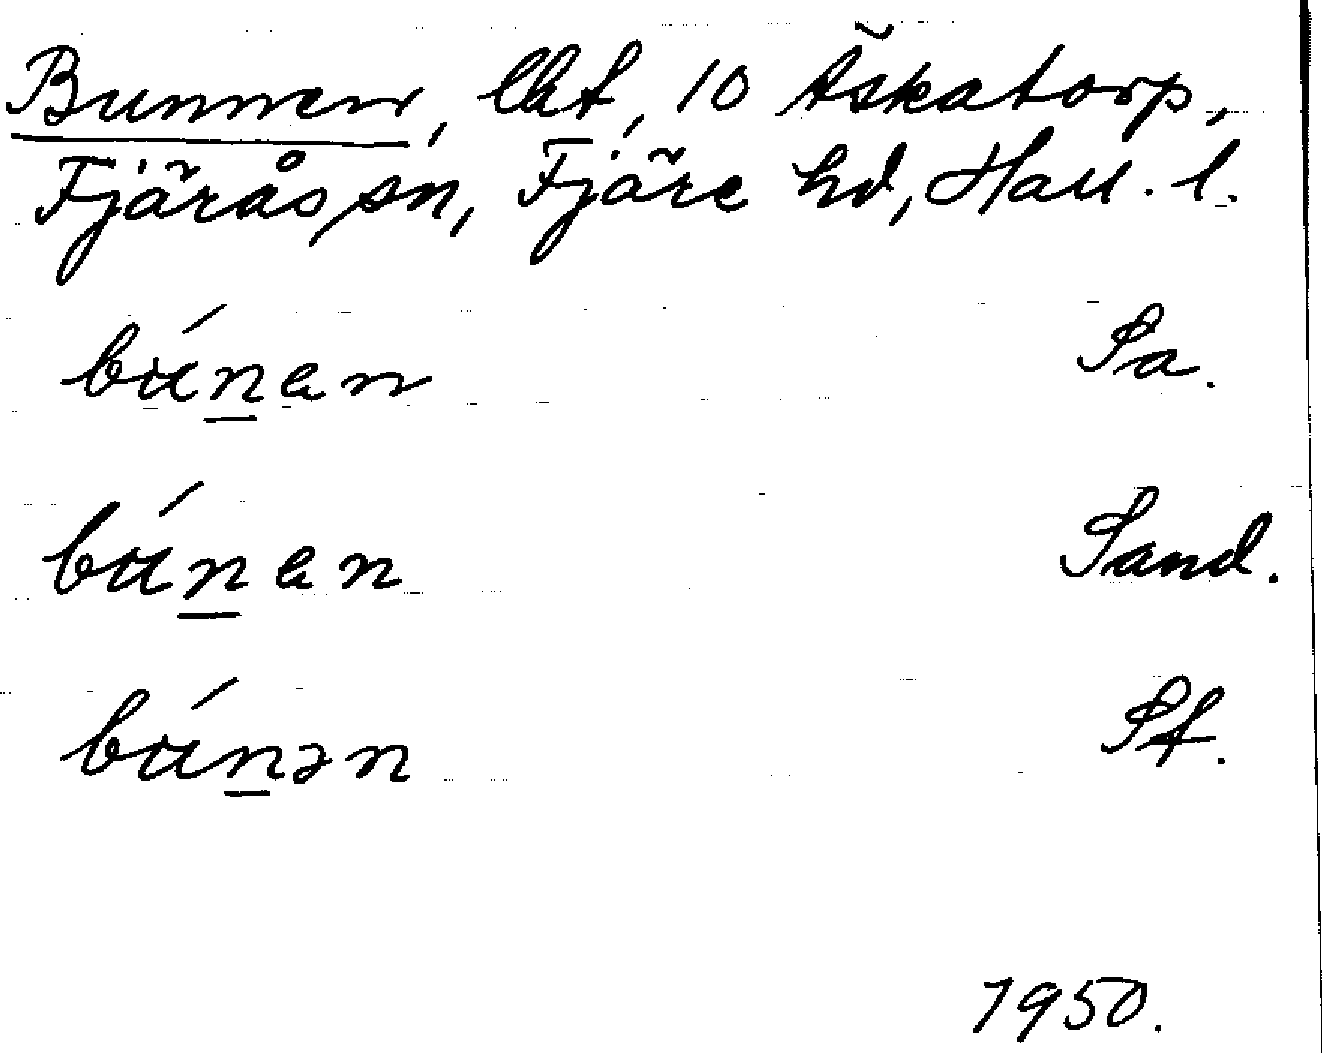 Bunnen, lht, 10 Åskatorp,
Fjärås sn, Fjäre hd, Hall. l.
búnan Sa.
búnan Sand.
búnən St.
1950.